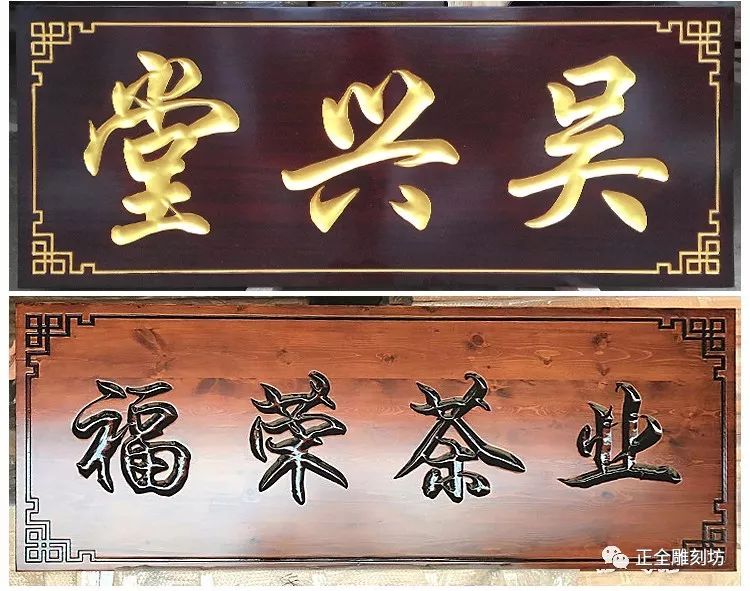 吴兴堂
福荣茶业
正全雕刻坊